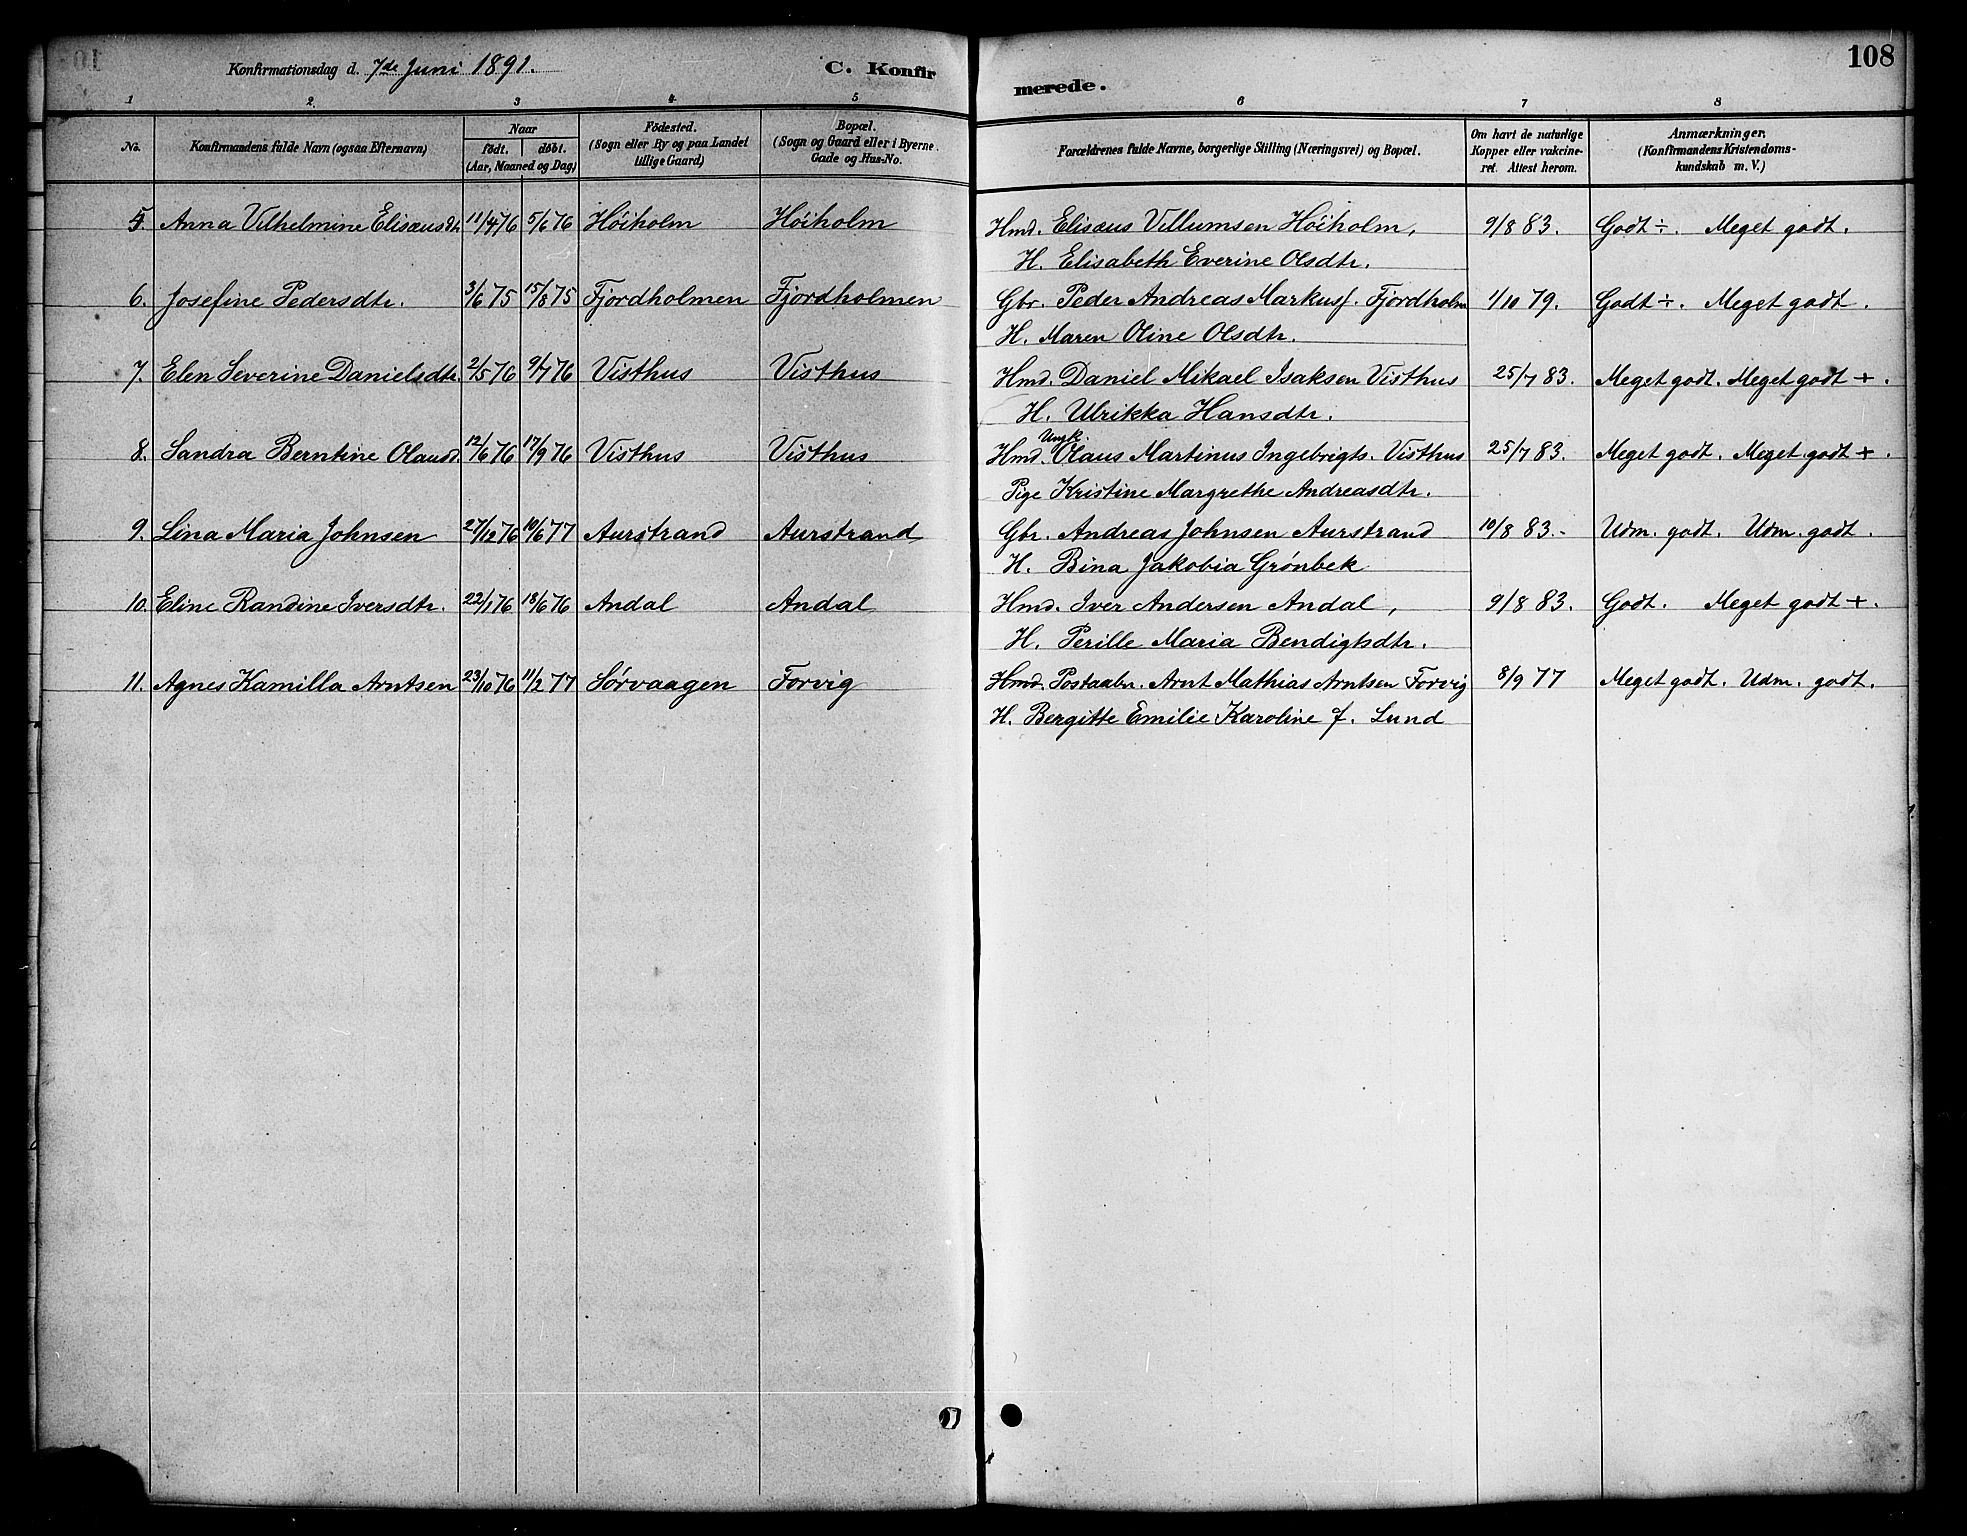 Konfirmationsdag d. 7de Juni 1891. C. Konfirmerede. 108
1 2 3 4 5 6 7 8
No. Konfirmandens fulde Navn (ogsaa Efternavn) Naar født. døbt. (Aar, Maaned og Dag) Fødested. (Sogn eller By og paa Landet tillige Gaard) Bopæl. (Sogn og Gaard eller i Byerne Gade og Hus-No. Forældrenes fulde Navne, borgerlige Stilling (Næringsvei) og Bopæl. Om havt de naturlige Kopper eller vakcineret. Attest herom. Anmærkninger. (Konfirmandens Kristendomskundskab m. V.)
5. Anna Vilhelmine Elisæusdt. 11/4 76 5/6 76 Høiholm Høiholm Hmd. Elisæus Villumsen Høiholm, 9/8 83. Godt ÷. Meget godt.
H. Elisabeth Everine Olsdtr.
6. Josefine Pedersdtr. 3/6 75 15/8 75 Fjordholmen Fjordholmen Gbr. Peder Andreas Markusf. Fjordholm 1/10 79. Godt ÷. Meget godt.
H. Maren Oline Olsdtr.
7. Elen Severine Danielsdtr. 2/5 76 9/7 76 Visthus Visthus Hmd. Daniel Mikael Isaksen Visthus 25/7 83. Meget godt. Meget godt +.
H. Ulrikka Hansdtr.
8. Sandra Berntine Olausd. 12/6 76 17/9 76 Visthus Visthus Hmd. Ungk. Olaus Martinus Ingebrigts. Visthus 25/7 83. Meget godt. Meget godt +.
Pige Kristine Margrethe Andreasdtr.
9. Lina Maria Johnsen 27/12 76 10/6 77 Aurstrand Aurstrand Gbr. Andreas Johnsen Aurstrand 10/8 83.- Udm. godt. Udm. godt.
H. Bina Jakobia Grønbek
10. Eline Randine Iversdtr. 22/1 76 18/6 76 Andal Andal Hmd. Iver Andersen Andal, 9/8 83. Godt. Meget godt +.
H. Perille Maria Bendigtsdtr.
11. Agnes Kamilla Arntsen 23/10 76 11/2 77 Sørvaagen Forvig Hmd. Postaabn. Arnt Mathias Arntsen Forvig 8/9 77 Meget godt. Udm. godt.
H. Bergitte Emilie Karoline f. Lund